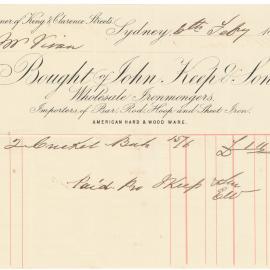 ner of King & Clarence Streets.
Sydney, 6th Feby 18
Mr Vivian
Bought of John Keep & Son
Wholesale Ironmongers,
Importers of Bar, Rod, Hoop and Sheet Iron.
AMERICAN HARD & WOOD WARE.
2 Cricket Bats 15/6 £1 11
Paid Pro J Keep & Son
EW